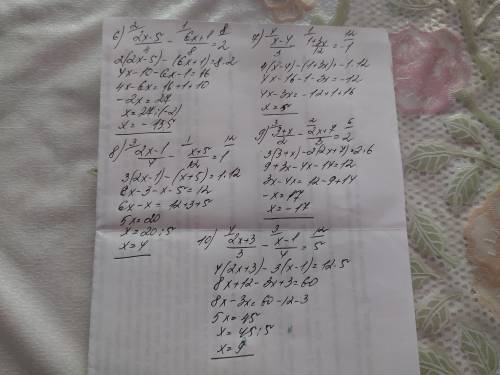 6) (2x-5)/4 - (6x+1)/8 = 2
2(2x-5)-(6x+1)=8·2
4x-10-6x-1=16
4x-6x=16+1+10
-2x=27
x=27:(-2)
x=-13,5
7) (x-4)/3 - (1+3x)/12 = -1
4(x-4)-(1+3x)=-1·12
4x-16-1-3x=-12
4x-3x=-12+1+16
x=5
8) (2x-1)/4 - (x+5)/12 = 1
3(2x-1)-(x+5)=1·12
6x-3-x-5=12
6x-x=12+3+5
5x=20
x=20:5
x=4
9) (3+x)/2 - (2x+7)/3 = 2
3(3+x)-2(2x+7)=2·6
9+3x-4x-14=12
3x-4x=12-9+14
-x=17
x=-17
10) (2x+3)/3 - (x-1)/4 = 5
4(2x+3)-3(x-1)=12·5
8x+12-3x+3=60
8x-3x=60-12-3
5x=45
x=45:5
x=9